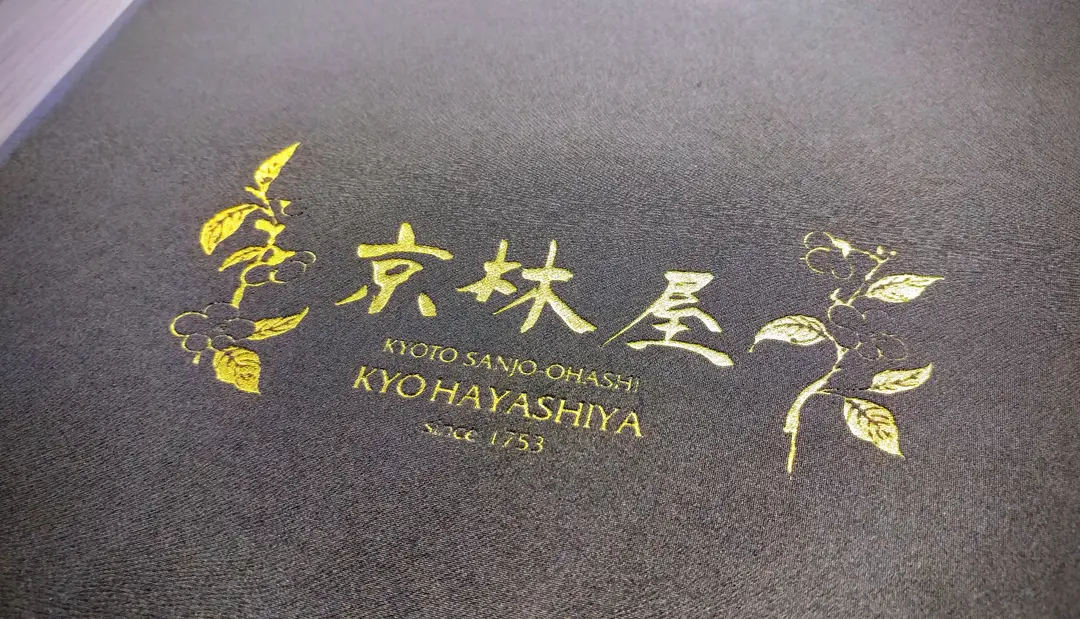 京林屋
KYOTO SANJO-OHASHI
KYO HAYASHIYA
Since 1753